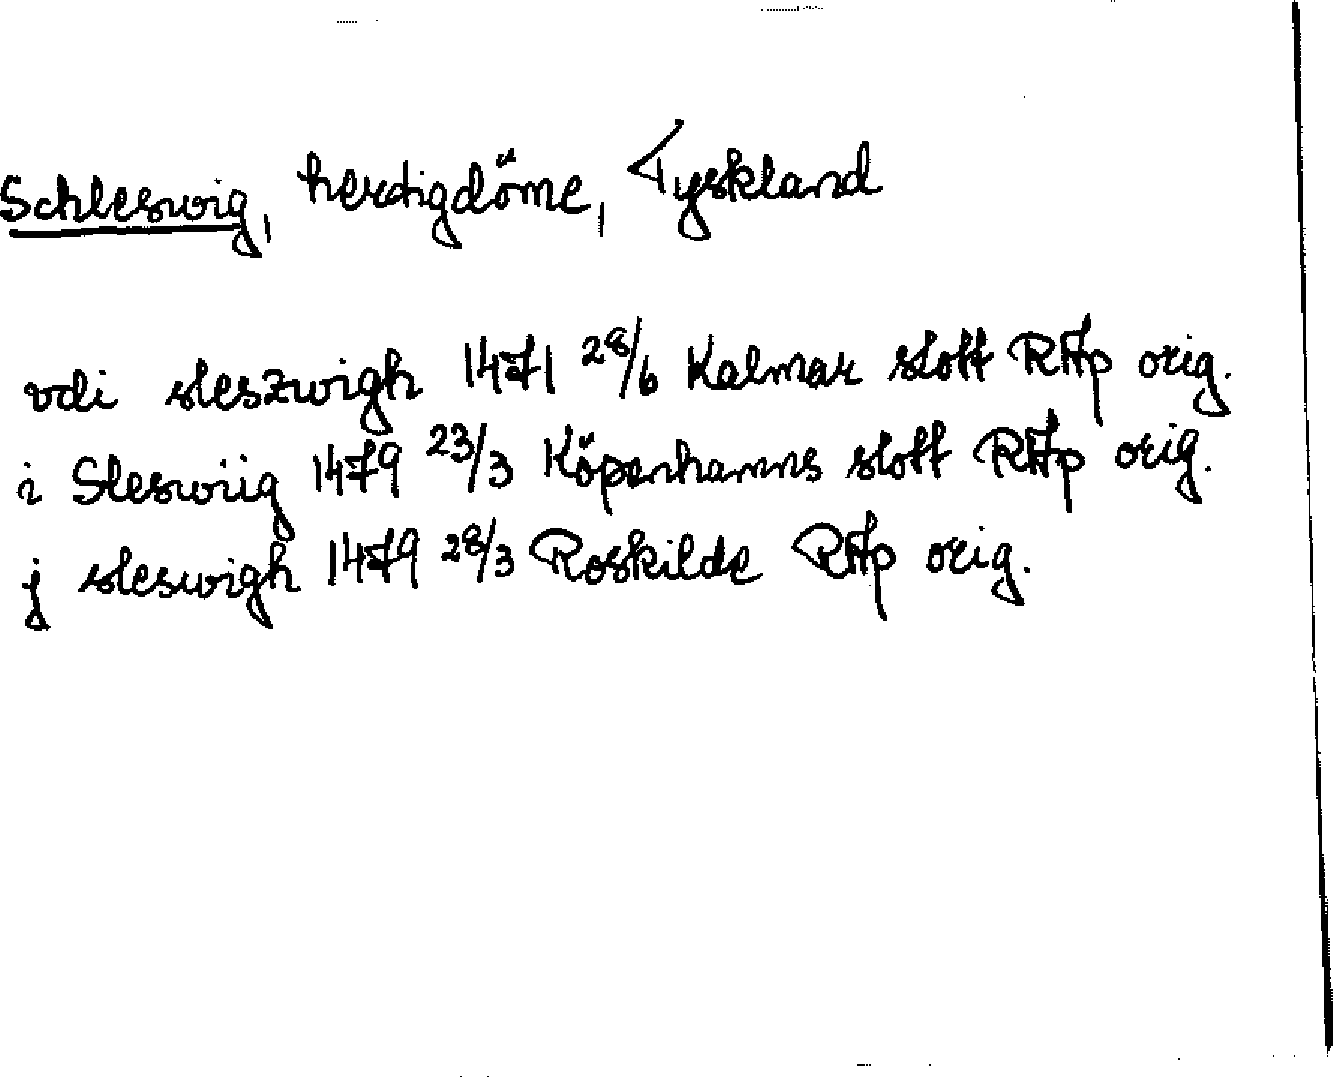 Schleswig, hertigdöme, Tyskland
vdi sleszwigh 1471 28/6 Kalmar slott RAp orig.
i Sleswiig 1479 23/3 Köpenhamns slott RAp orig.
j sleswigh 1479 28/3 Roskilde RAp orig.